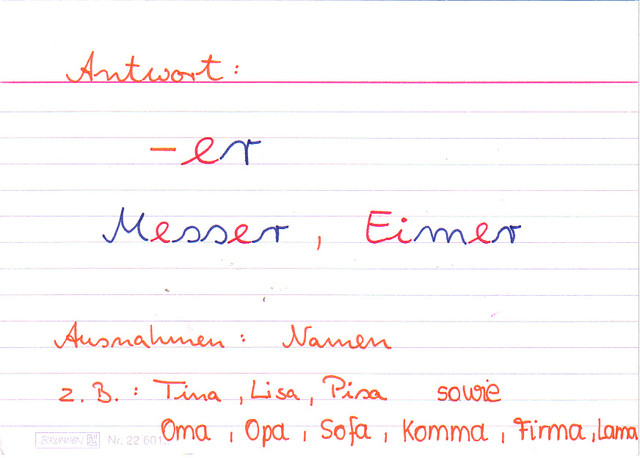 Antwort:
-er
Messer, Eimer
Ausnahmen: Namen
z. B.: Tina, Lisa, Pisa sowie
Oma, Opa, Sofa, Komma, Firma, Lama
BRUNNEN Nr. 22 601